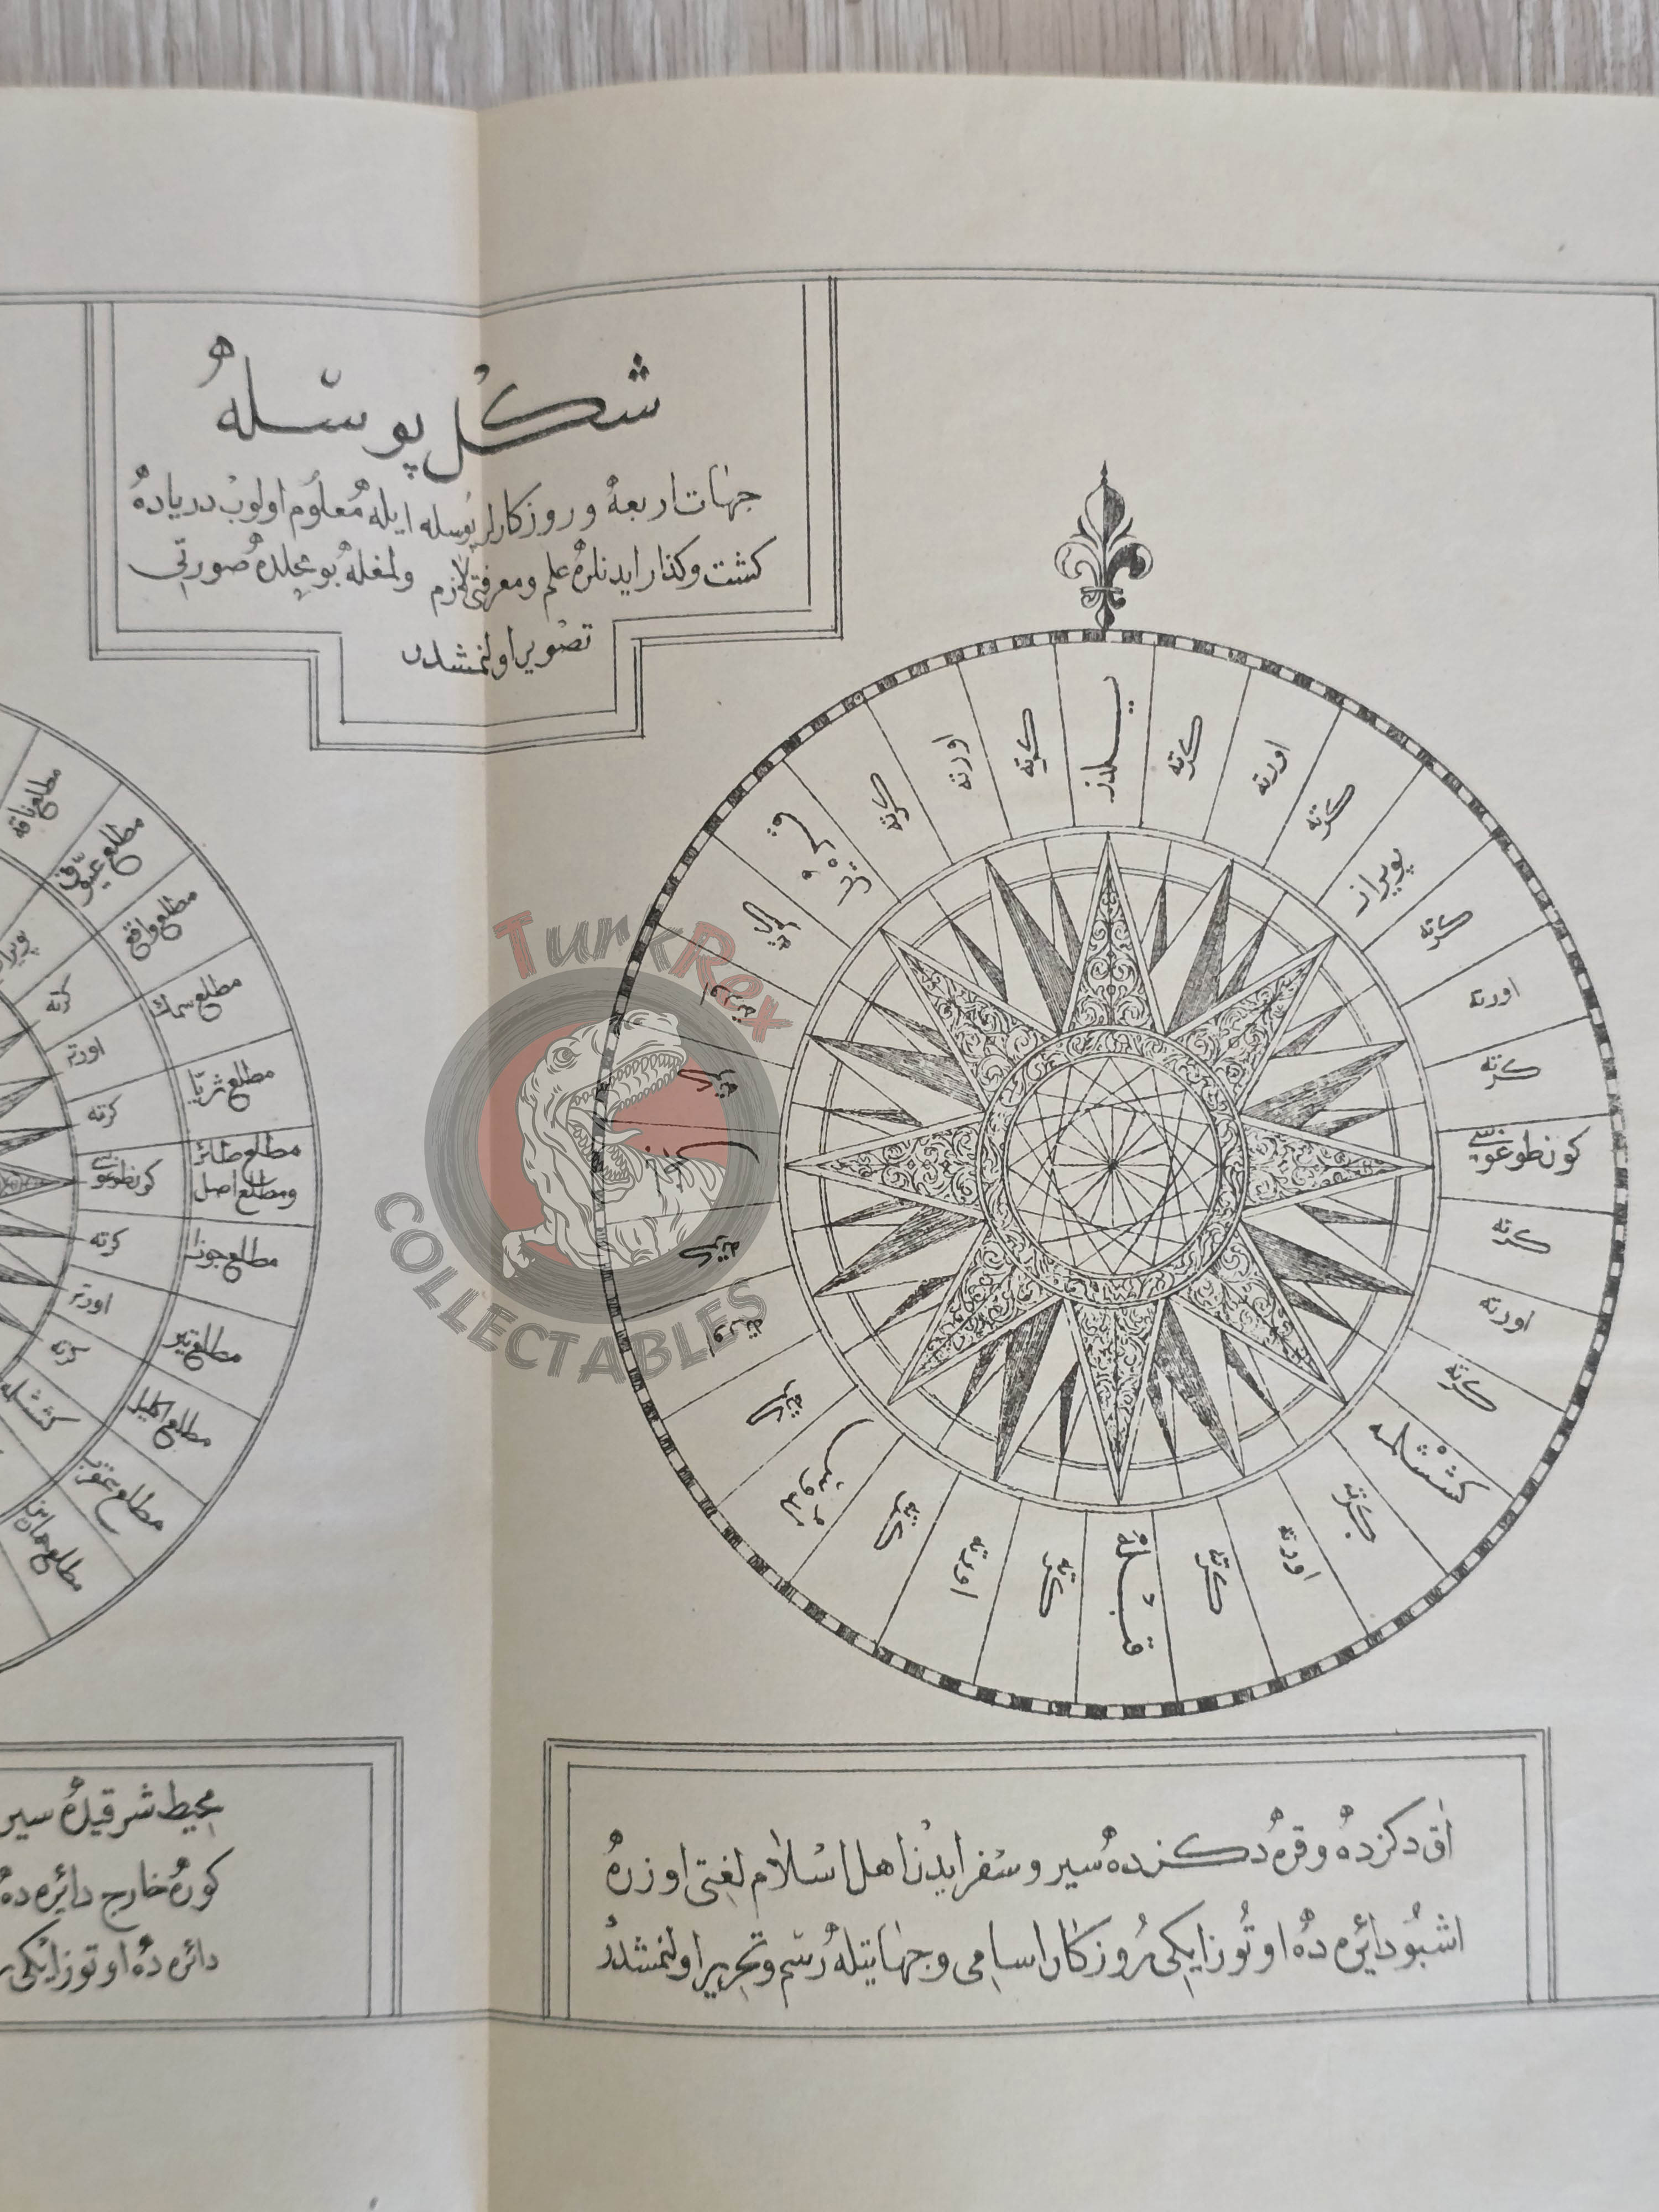 شكل پوسله
جهات اربعه و روزكارلر پوسله ايله معلوم اولوب درياده
كشت و كذار ايدنلره علم و معرفتى لازم ولمغله بو محلده صورتى
تصوير اولنمشدر
يلدز
كرته
اورته
كرته
پويراز
كرته
اورته
كرته
كون طوغوسى
كرته
اورته
كرته
كششلمه
كرته
اورته
كرته
قبله
كرته
اورته
كرته
لودوس
كرته
اورته
كرته
كرته
اورته
قره يل
كرته
اورته
كرته
مطلع ناقه
مطلع عيوق
مطلع واقع
مطلع سماك
مطلع ثريا
مطلع طائر
ومطلع اصل
مطلع جوزا
مطلع تير
مطلع اكليل
مطلع عقرب
مطلع حمارين
كرته
اورته
كرته
كون طوغوسى
كرته
اورته
كرته
كششلمه
آق دكزده و قره دكزده سير و سفر ايدن اهل اسلام لغتى اوزره
اشبو دائره ده اوتوز ايكى روزكار اسامى و جهاتيله رسم و تحرير اولنمشدر
محيط شرقيده سير
كوره خارج دائره ده
دائره ده اوتوز ايكى
TurkRex
COLLECTABLES